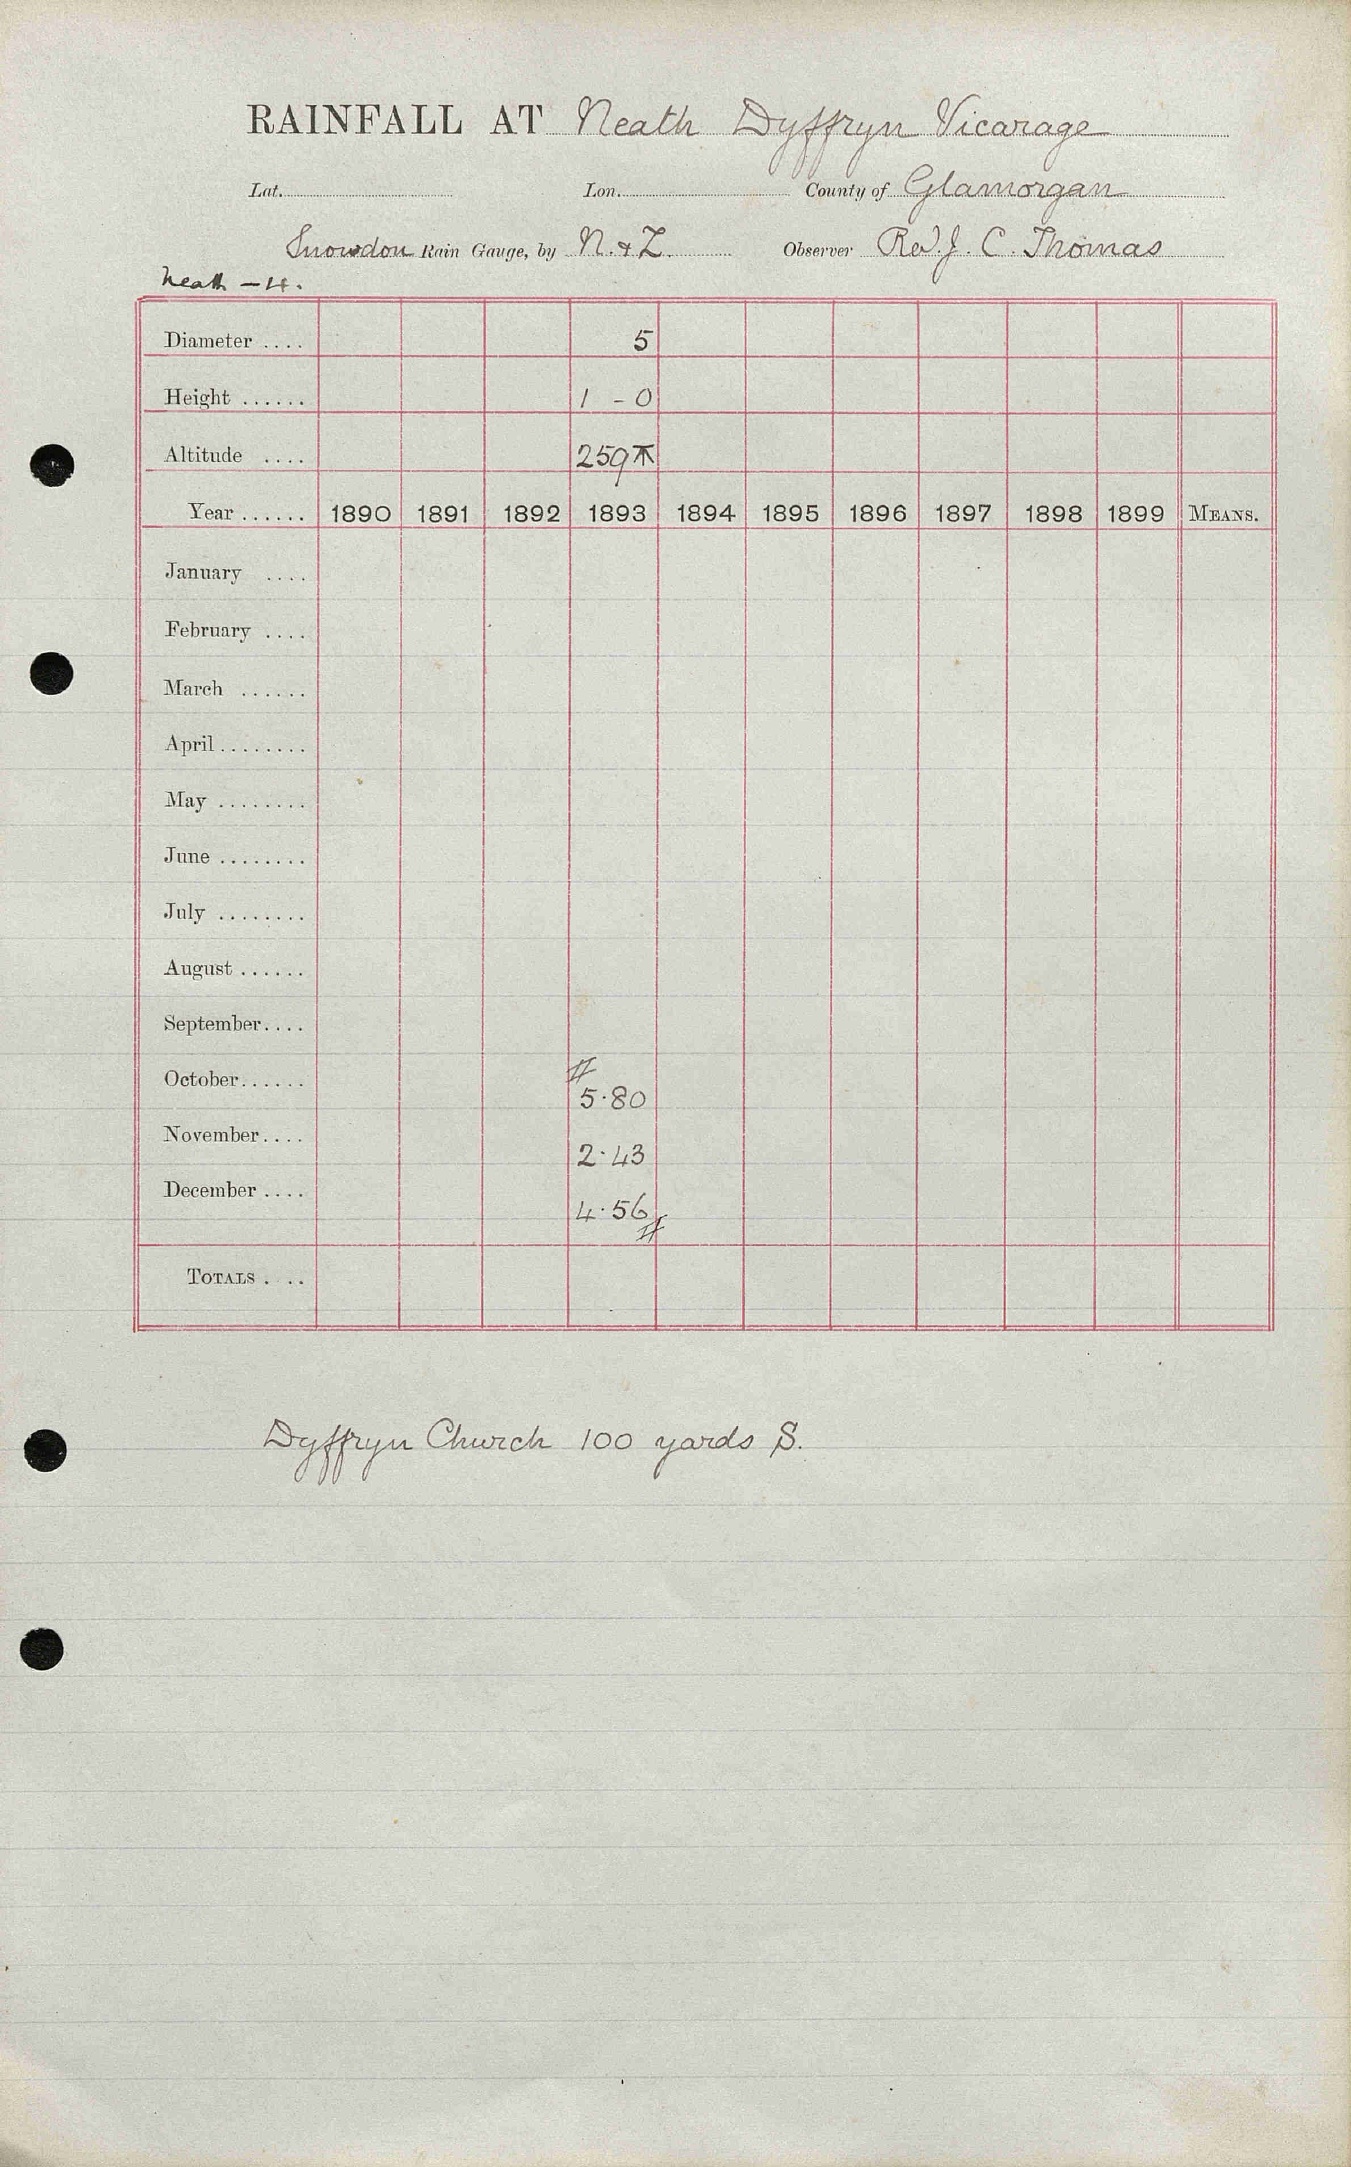 RAINFALL AT Neath Dyffryn Vicarage
Lat. Lon. County of Glamorgan
Snowdon Rain Gauge, by N. & Z. Observer Rev. J. C. Thomas
Neath - 4.
Diameter .... 5
Height ...... 1 - 0
Altitude .... 259
Year ...... 1890 1891 1892 1893 1894 1895 1896 1897 1898 1899 MEANS.
January ....
February ....
March ......
April ........
May ........
June ........
July ........
August ......
September ....
October ...... # 5.80
November .... 2.43
December .... 4.56 #
TOTALS . ..
Dyffryn Church 100 yards S.